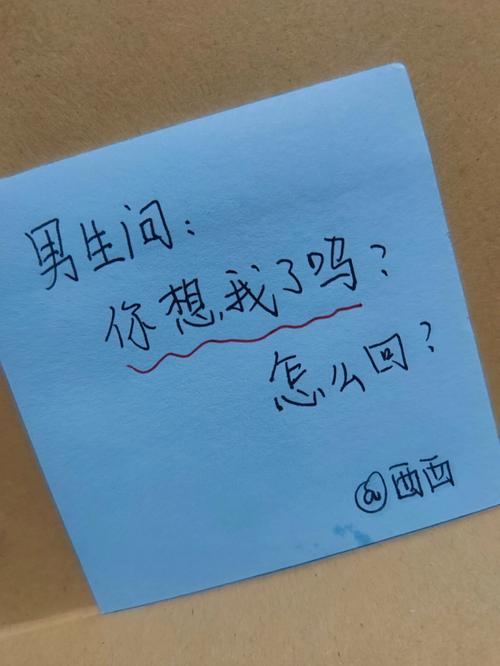 男生间：
你想我了吗？
怎么回？
@西西